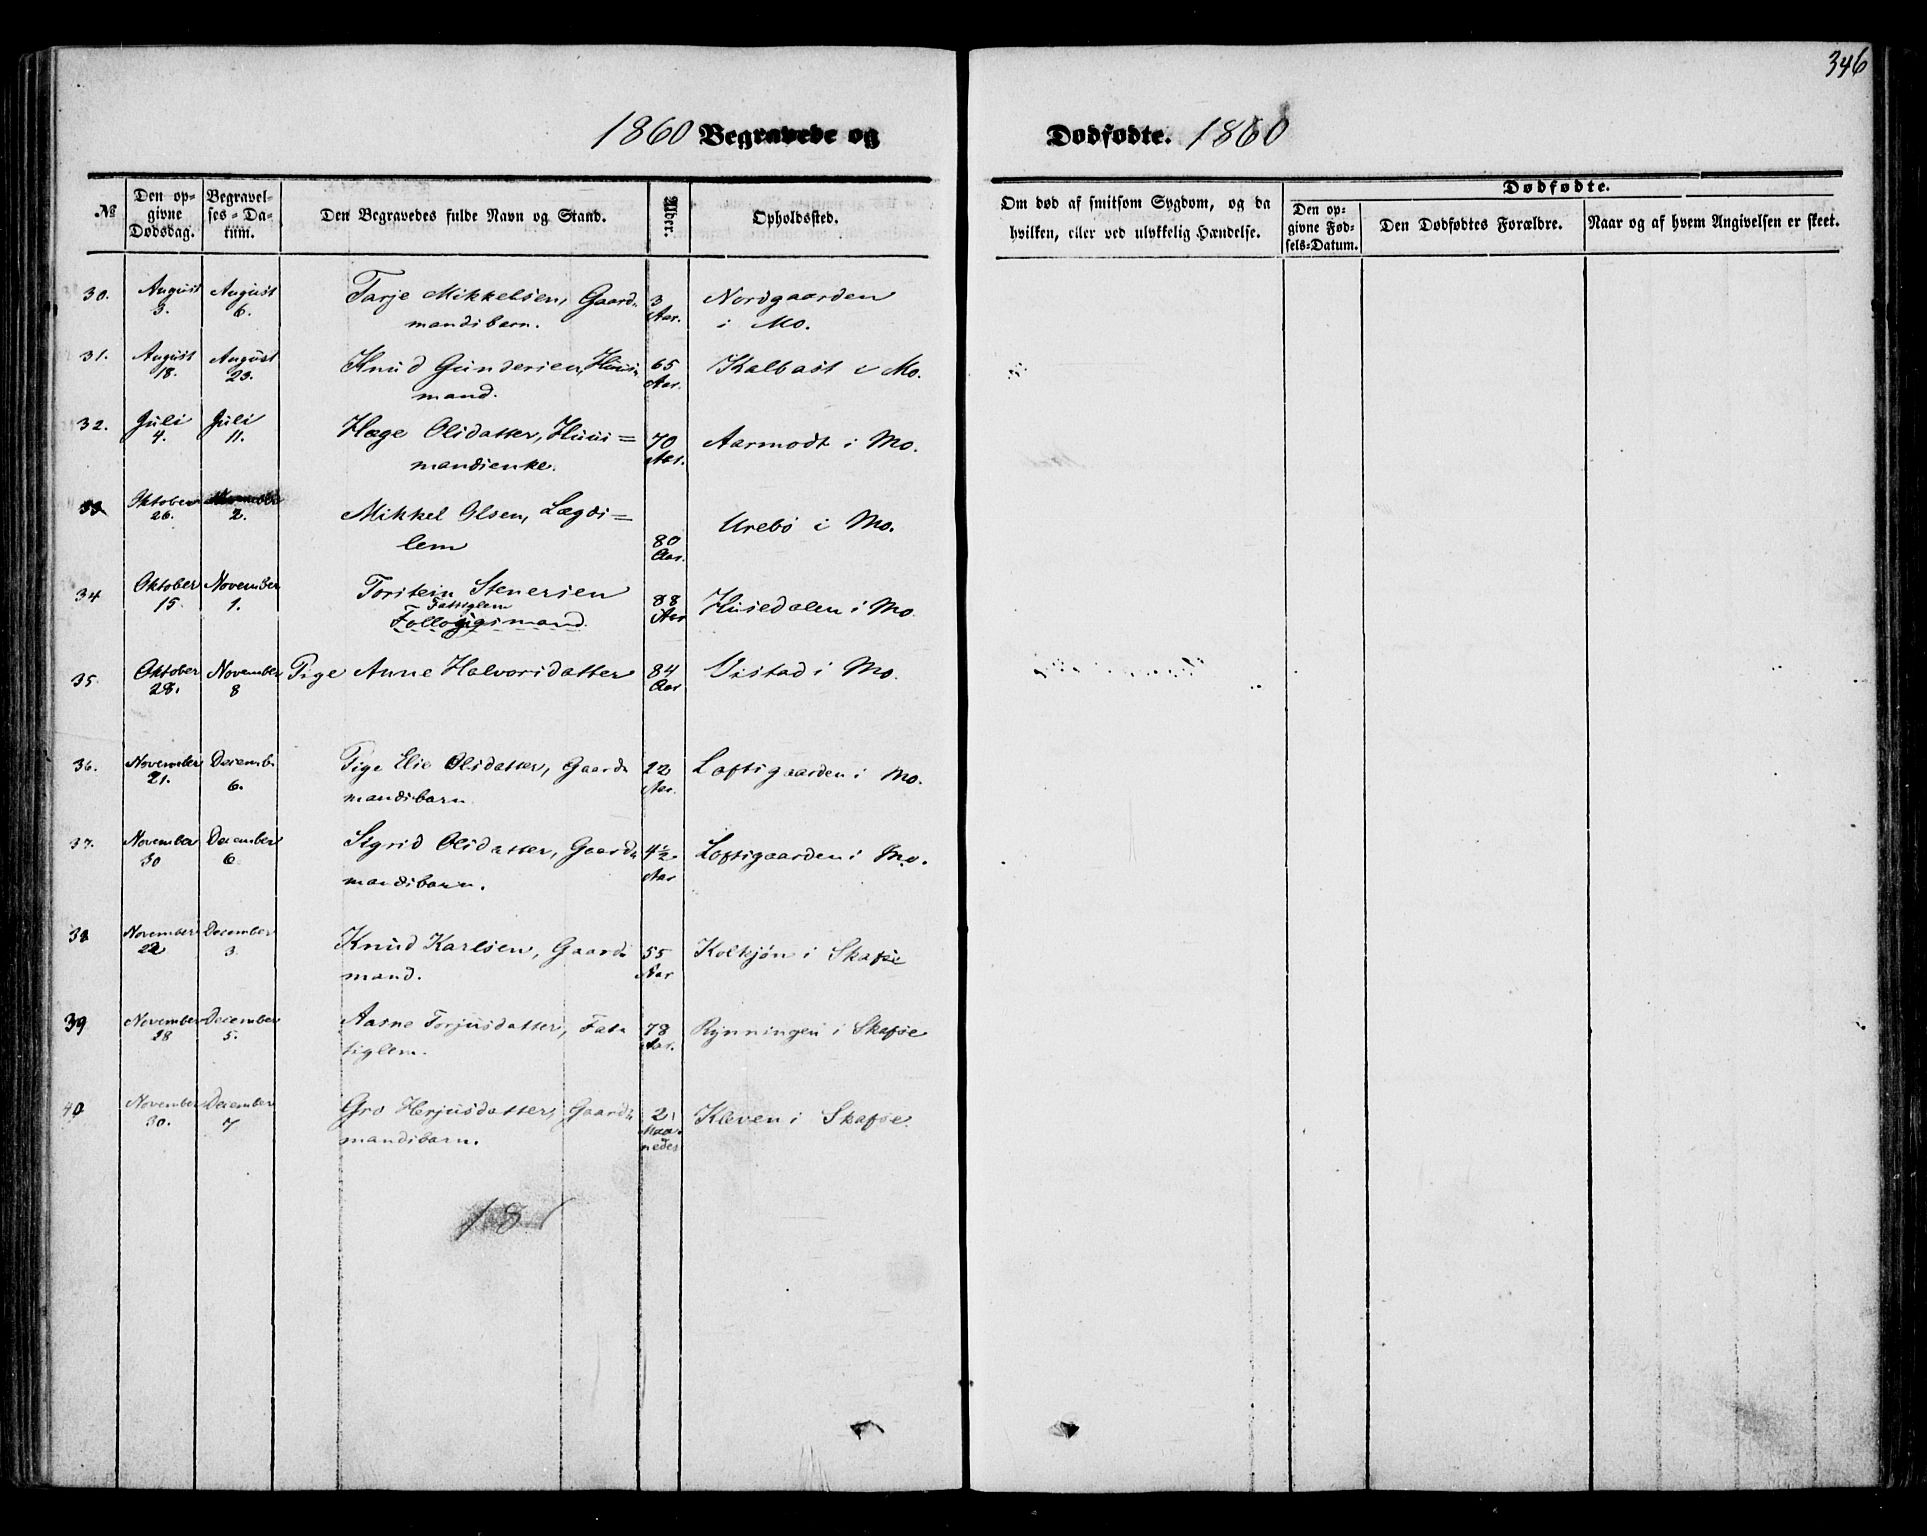 346
1860 Begravede og Dødfødte. 1860
№ Den opgivne Dødsdag. Begravelses-Datum. Den Begravedes fulde Navn og Stand. Alder. Opholdssted. Om død af smitsom Sygdom, og da hvilken, eller ved ulykkelig Hændelse. Dødfødte. Den opgivne Fødsels-Datum. Den Dødfødtes Forældre. Naar og af hvem Angivelsen er skeet.
30. August 3. August 6. Tarje Mikkelsen, Gaardmandsbarn. 3 Aar. Nordgaarden i Mo.
31. August 18. August 23. Knud Gundersen, Huusmand. 65 Aar. Kalbast i Mo.
32. Juli 4. Juli 11. Hæge Olsdatter, Huusmandsenke. 70 Aar. Aarmodt i Mo.
33. Oktober 26. 2. Mikkel Olsen, Lægdslem 80 Aar. Urebø i Mo.
34 Oktober 15. November 1. Torstein Stenersen Fattiglem Follougsmand. 88 Aar Husedalen i Mo.
35. Oktober 28. November 8 Pige Anne Halvorsdatter 84 Aar Vistad i Mo.
36. November 21. Decemb. 6. Pige Elie Olsdatter, Gaardmandsbarn 22 Aar. Loftsgaarden i Mo.
37. November 30 December 6 Sigrid Olsdatter, Gaardmandsbarn. 4½ Aar Loftsgaarden i Mo.
38 November 22 December 3 Knud Karlsen, Gaardmand. 55 Aar Kolkjøn i Skafse
39 November 28 December 5. Aasne Torjusdatter, Fattiglem. 78 Aar. Rynningen i Skafse
40 November 30. December 7 Gro Herjusdatter, Gaardmandsbarn. 2 Maaneder Kleven i Skafse.
18